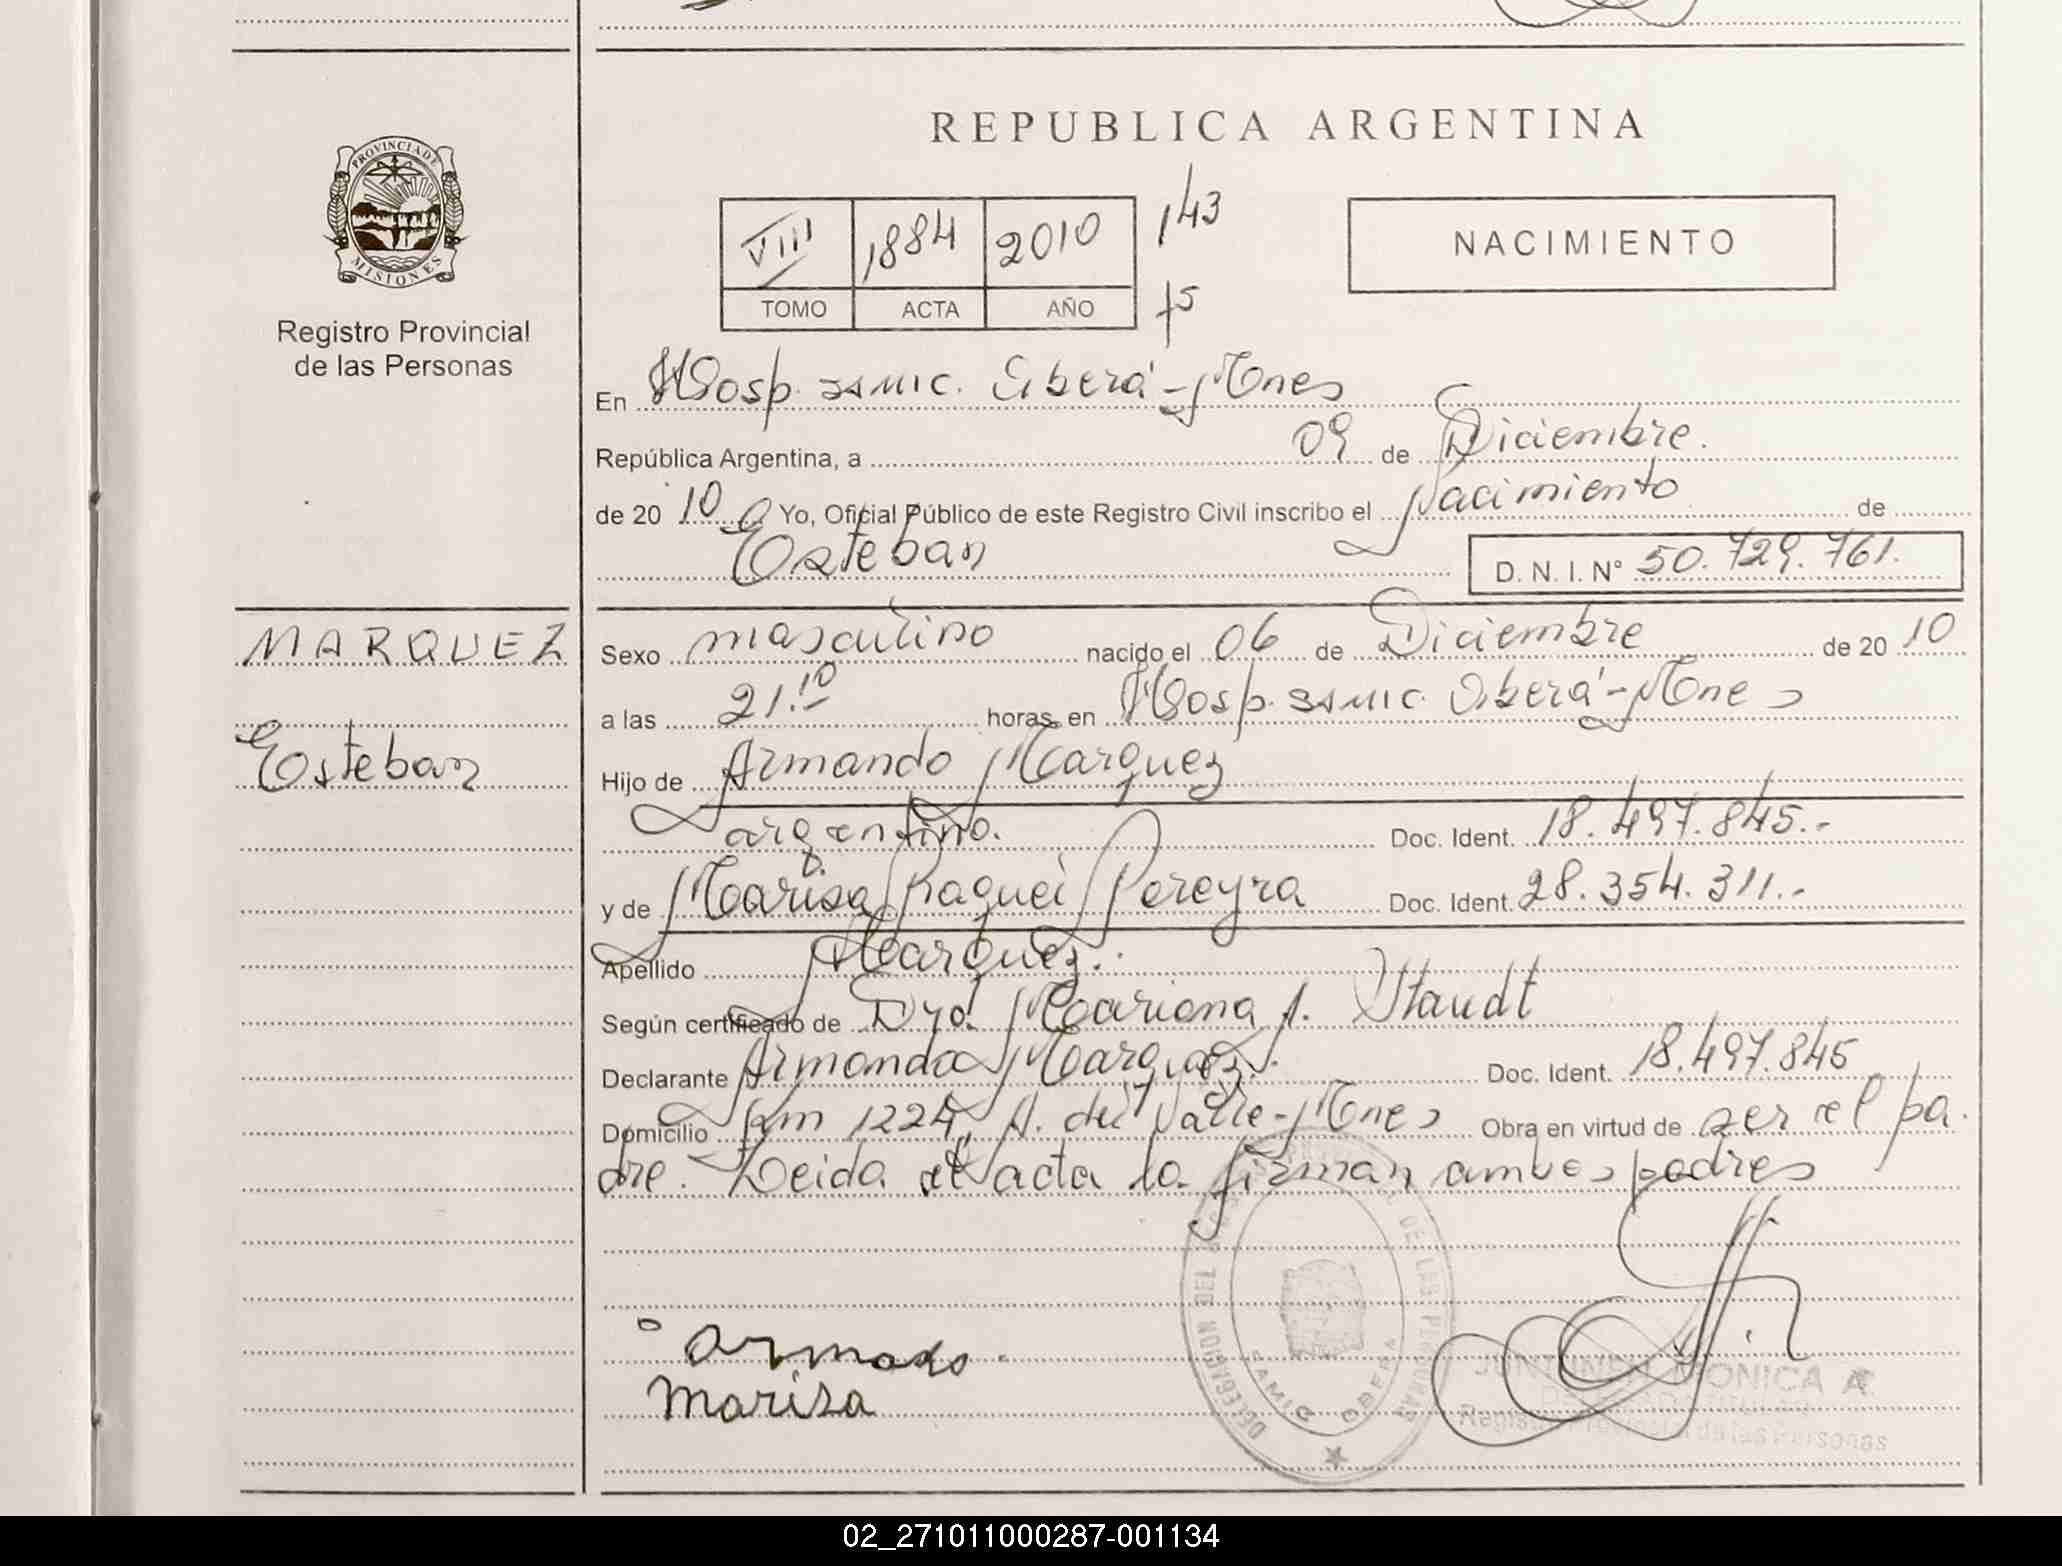 REPUBLICA ARGENTINA
PROVINCIA DE
MISIONES
Registro Provincial
de las Personas
VIII 1884 2010 143
TOMO ACTA AÑO f5
NACIMIENTO
En Hosp. SAMIC. Oberá - Mnes
República Argentina, a 09 de Diciembre.
de 20 10 Yo, Oficial Público de este Registro Civil inscribo el Nacimiento de
Esteban D. N. I. N° 50.729.761.
MARQUEZ
Esteban
Sexo masculino nacido el 06 de Diciembre de 20 10
a las 21.10 horas, en Hosp. SAMIC. Oberá - Mnes
Hijo de Armando Marquez
argentino. Doc. Ident. 18.497.845.-
y de Marisa Raquel Pereyra Doc. Ident. 28.354.311.-
Apellido Marquez.
Según certificado de Dra. Mariana A. Staudt
Declarante Armando Marquez. Doc. Ident. 18.497.845
Domicilio Km 1224, A. del Valle - Mnes Obra en virtud de ser el pa
dre. Leida el acta la firman ambos padres
Armado
Marisa
DELEGACION DEL DE LAS PERSONAS
SAMIC OBERA
MONICA A.
Registro Provincial de las Personas
02_271011000287-001134